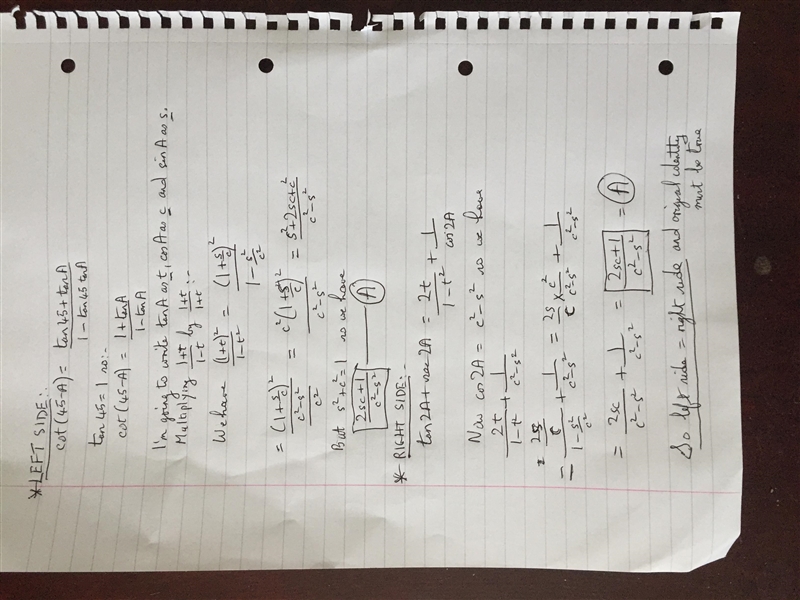 * LEFT SIDE:-
cot(45-A) = (tan45 + tanA)/(1 - tan45 tanA)
tan45 = 1 so:-
cot(45-A) = (1 + tanA)/(1 - tanA)
I'm going to write tanA as t, cosA as c and sinA as s.
Multiplying (1+t)/(1-t) by (1+t)/(1+t) :-
We have (1+t)²/(1-t²) = (1+s/c)²/(1-s²/c²)
= (1+s/c)²/((c²-s²)/c²) = c²(1+s/c)²/(c²-s²) = (s²+2sc+c²)/(c²-s²)
But s²+c²=1 so we have
(2sc+1)/(c²-s²) — A
* RIGHT SIDE:-
tan2A + sec2A = 2t/(1-t²) + 1/cos2A
Now cos2A = c²-s² so we have
2t/(1-t²) + 1/(c²-s²)
= (2s/c)/(1-s²/c²) + 1/(c²-s²) = 2s/c × c²/(c²-s²) + 1/(c²-s²)
= 2sc/(c²-s²) + 1/(c²-s²) = (2sc+1)/(c²-s²) = A
So left side = right side and original identity
must be true